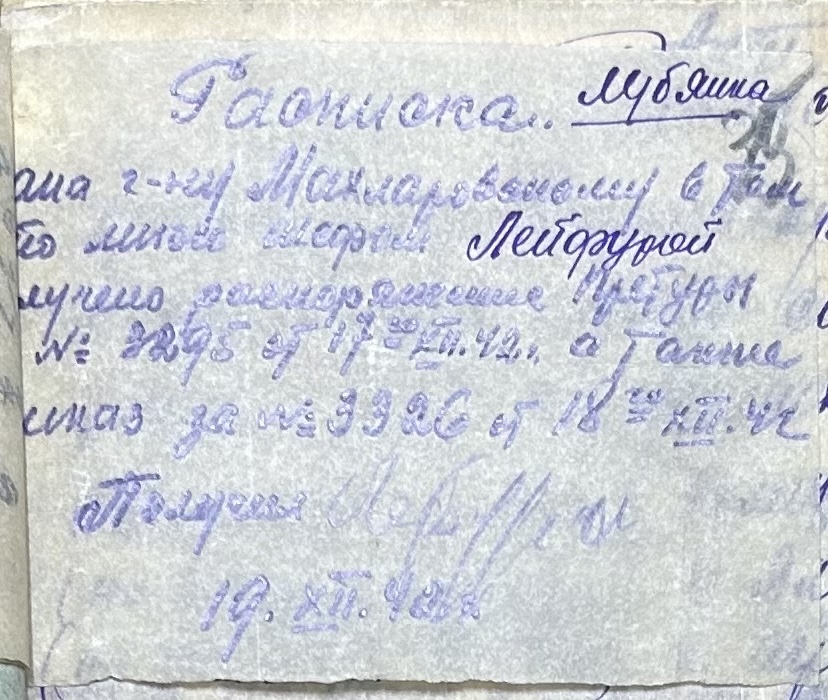 Расписка. Лубянка
ана г-ну Махларовскому в том
то мною шефом Лейфурой
лучено распоряжение Претуры
№ 3295 от 17го XII.42г. а также
иказ за № 3326 от 18го XII.42
Получил
19. XII. 42г.